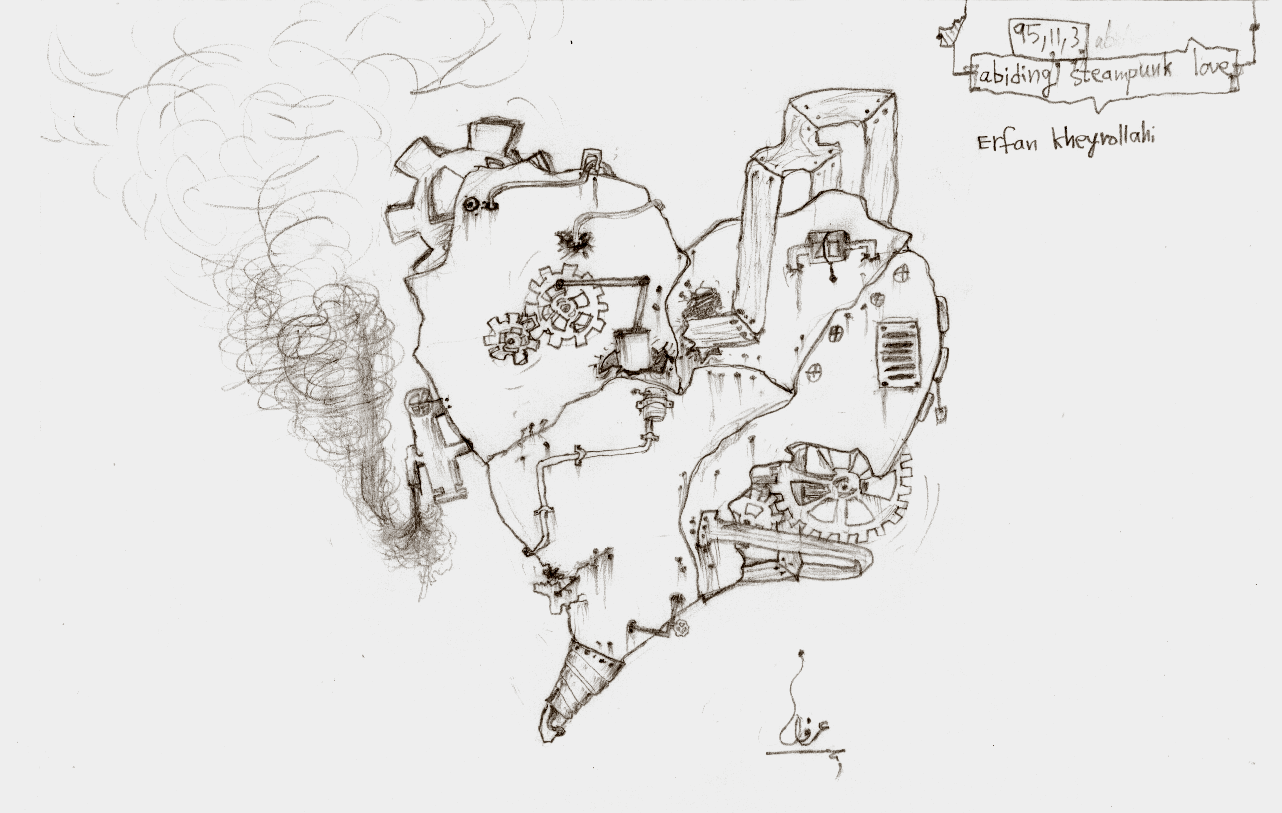 95,11,3
abiding steampunk love
Erfan kheyrollahi
عرفان